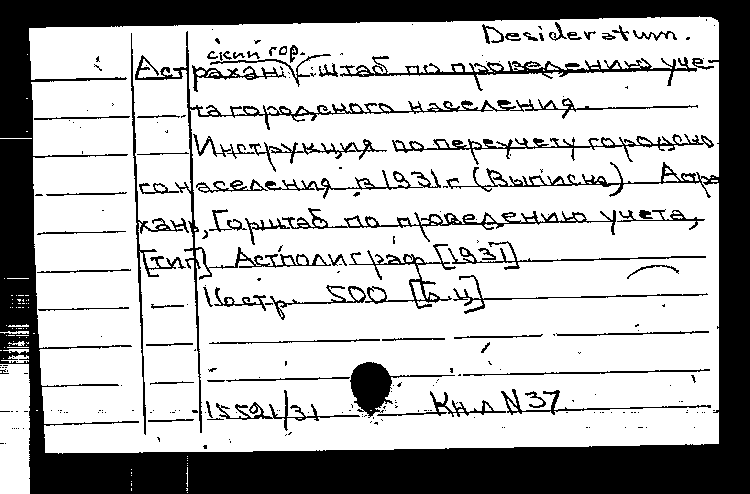 Desideratum.
ский гор.
Астрахань штаб по проведению уче-
та городского населения.
Инструкция по переучету городско
го населения в 1931 г (Выписка). Астра
хань, Горштаб по проведению учета,
[тип] Астполиграф [1931]
стр. 500 [б.ц]
15521/31 Кн.л N37.